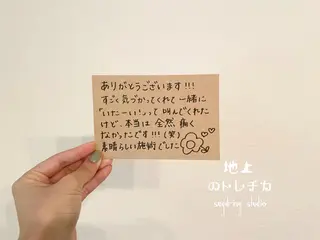 ありがとうございます!!!
すごく気づかってくれて 一緒に
"いたーい!"って 叫んでくれた
けど、本当は 全然 痛く
なかったです!!!(笑)
素晴らしい施術でした
地上
のトレチカ